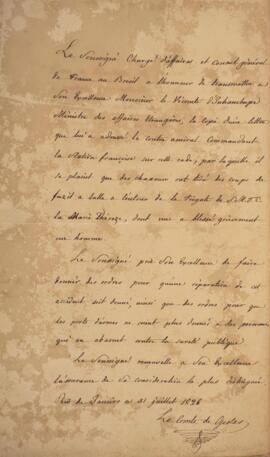 Le Soussigné Chargé d'affaires et consul général
de France au Brésil a l'honneur de transmettre à
Son Excellence Monsieur le Vicomte d'Inhambupe
Ministre des affaires Etrangères, la copie d'une lettre
que lui a adressé le contre amiral Commandant
la Station française sur cette rade, par laquelle il
se plaint que des chasseurs ont tiré des coups de
fusil à balle à l'entour de la frégate de S.M.T.C.
la Marie Thérèse, dont un a blessé grièvement
un homme.
Le Soussigné prie Son Excellence de faire
donner des ordres pour qu'une réparation de cet
accident soit donné, ainsi que des ordres pour que
des ports d'armes ne soient plus donnés à des personnes
qui en abusent contre la sureté publique.
Le Soussigné renouvelle à Son Excellence
l'assurance de Sa considération la plus distinguée
Rio de Janeiro ce 31 juillet 1826
Le Comte de Gestas